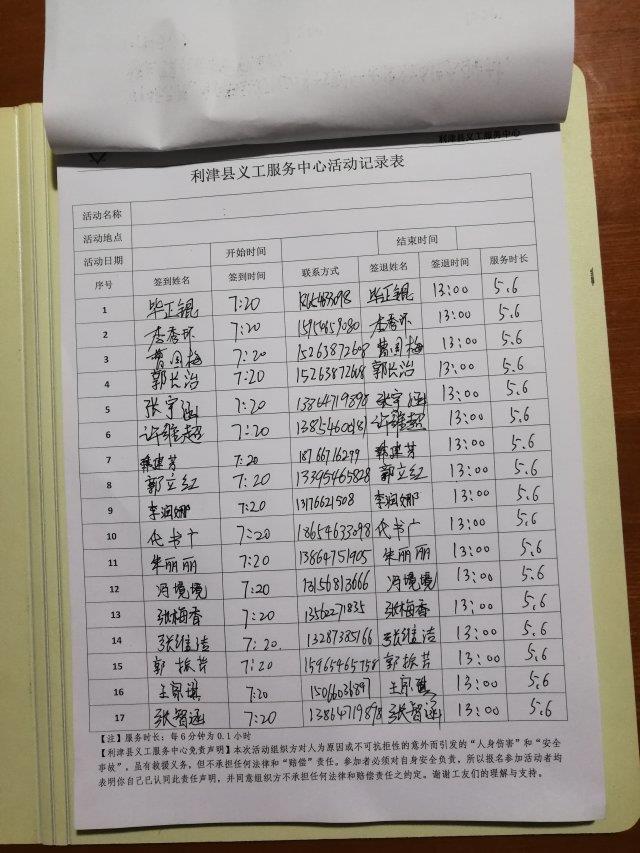 利津县义工服务中心
利津县义工服务中心活动记录表
活动名称 :
活动地点
活动日期 开始时间 结束时间
序号 签到姓名 签到时间 联系方式 签退姓名 签退时间 服务时长
1 毕正锟 7:20 毕正锟 13:00 5.6
2 李秀环 7:20 李秀环 13:00 5.6
3 曹国梅 7:20 15263872608 曹国梅 13:00 5.6
4 郭长治 7:20 15263872608 郭长治 13:00 5.6
5 张宇涵 7:20 13864719898 张宇涵 13:00 5.6
6 许维超 7:20 许维超 13:00 5.6
7 韩建芳 7:20 18766716299 韩建芳 13:00 5.6
8 郭立红 7:20 13395465828 郭立红 13:00 5.6
9 李润娜 7:20 13176621508 李润娜 13:00 5.6
10 代书广 7:20 18654633098 代书广 13:00 5.6
11 朱丽丽 7:20 13864751905 朱丽丽 13:00 5.6
12 冯境境 7:20 13156813666 冯境境 13:00 5.6
13 张梅香 7:20 张梅香 13:00 5.6
14 张维洁 7:20. 13287385166 张维洁 13:00 5.6
15 郭振芹 7:20 15965465758 郭振芹 13:00 5.6
16 7:20 15066036897 13:00 5.6
17 张智涵 7:20 13864719898 张智涵 13:00 5.6
【注】服务时长：每6分钟为0.1小时
【利津县义工服务中心免责声明】本次活动组织方对人为原因或不可抗拒性的意外而引发的“人身伤害”和“安全
事故”，虽有救援义务，但不承担任何法律和“赔偿”责任。参加者必须对自身安全负责，所以报名参加活动者均
表明你自己已认同此责任声明，并同意组织方不承担任何法律和赔偿责任之约定。谢谢工友们的理解与支持。